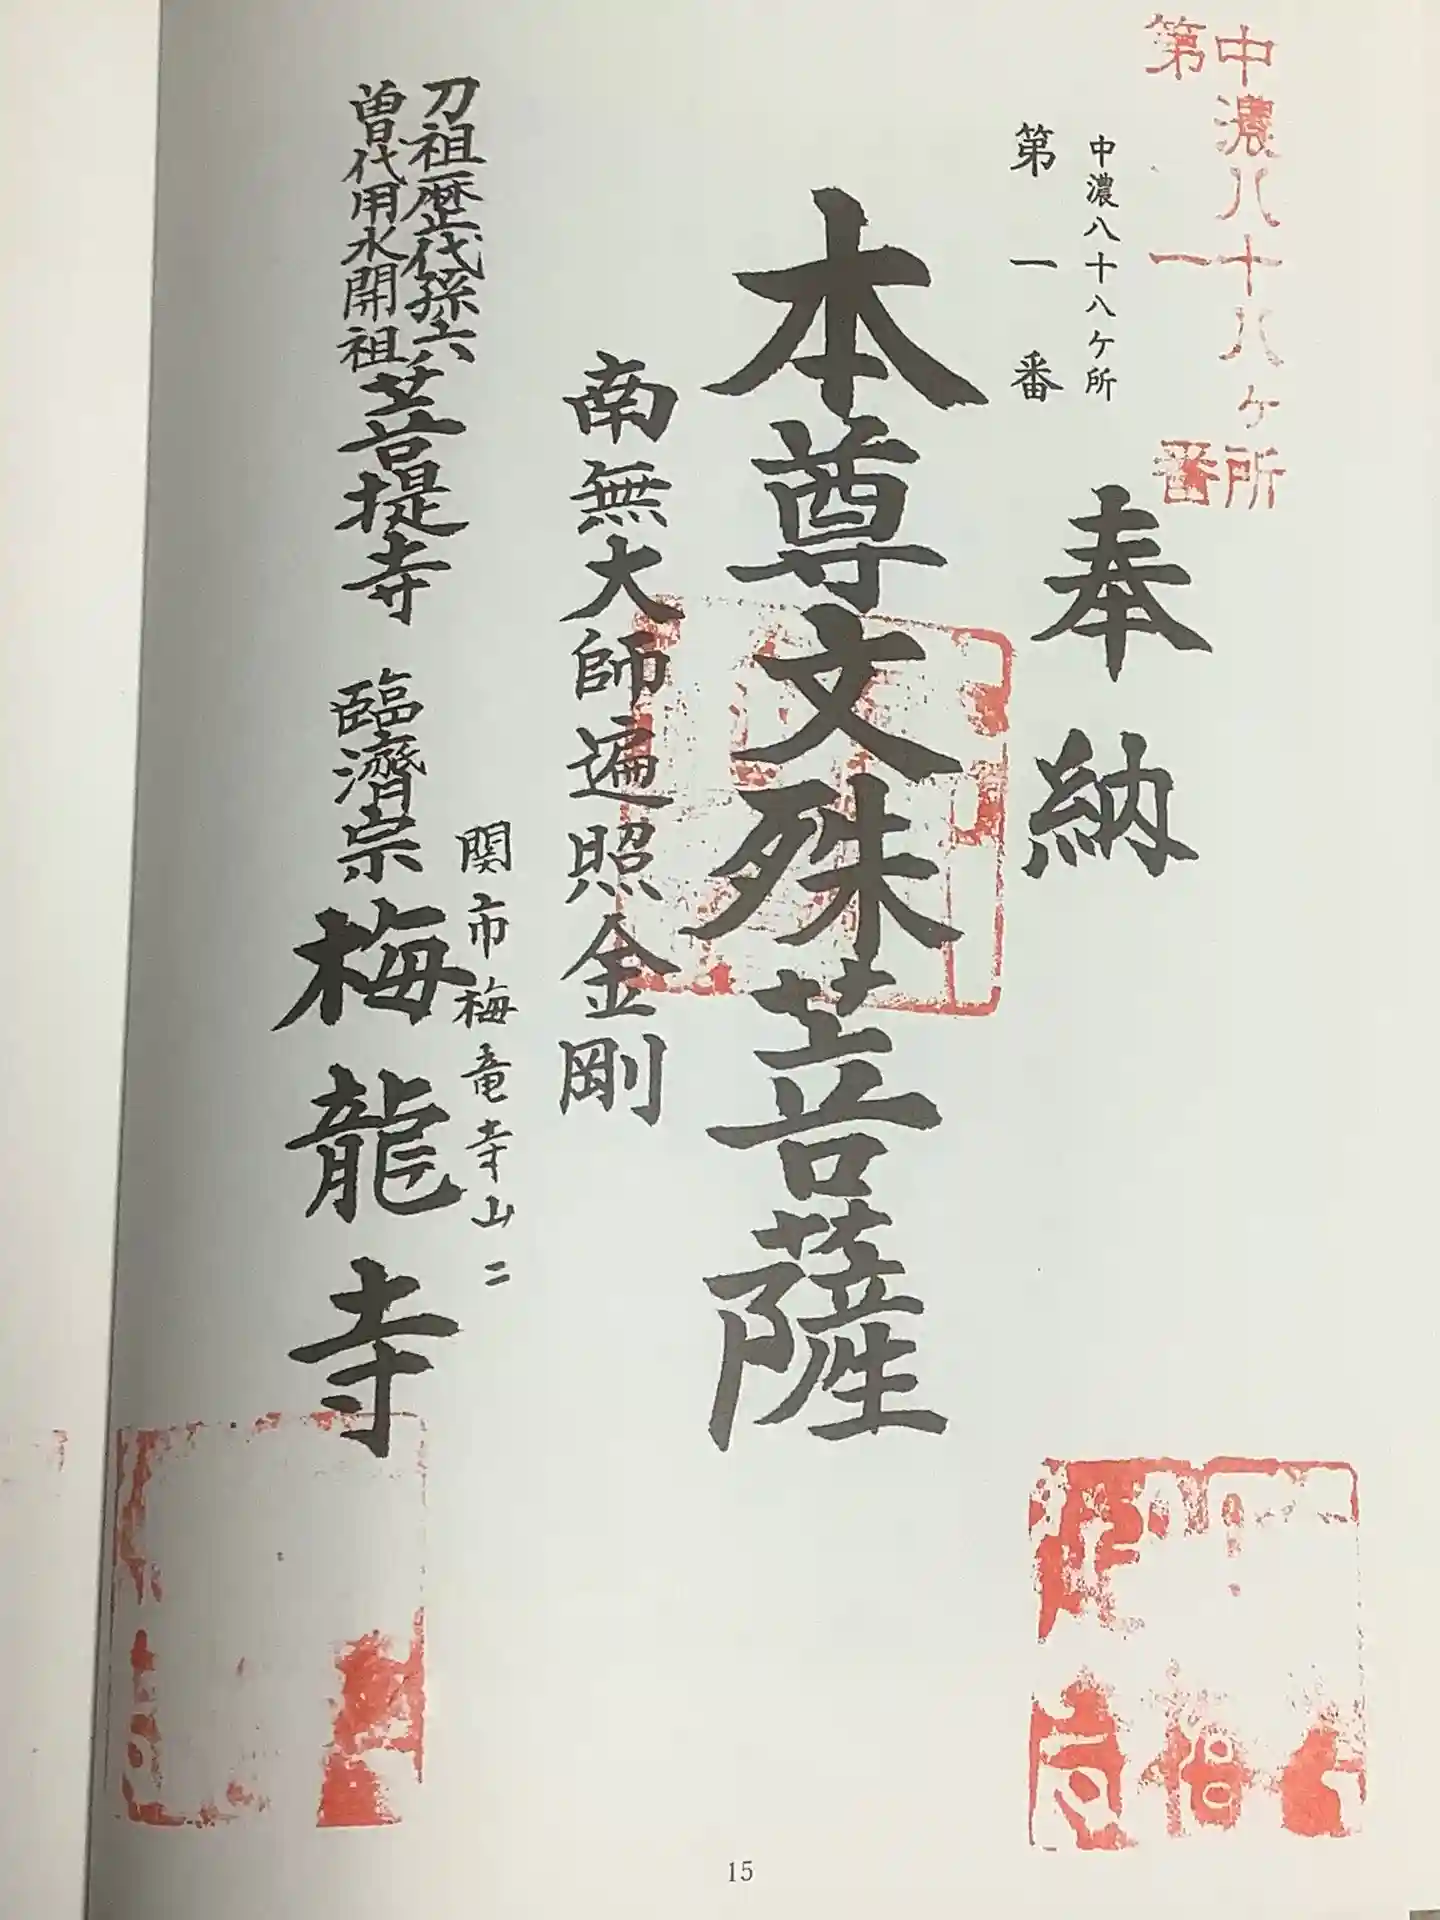 中濃八十八ヶ所
第一番
中濃八十八ヶ所
第一番
奉納
本尊文殊菩薩
南無大師遍照金剛
関市梅竜寺山二
刀祖歴代孫六
曽代用水開祖
菩提寺 臨濟宗 梅龍寺
15